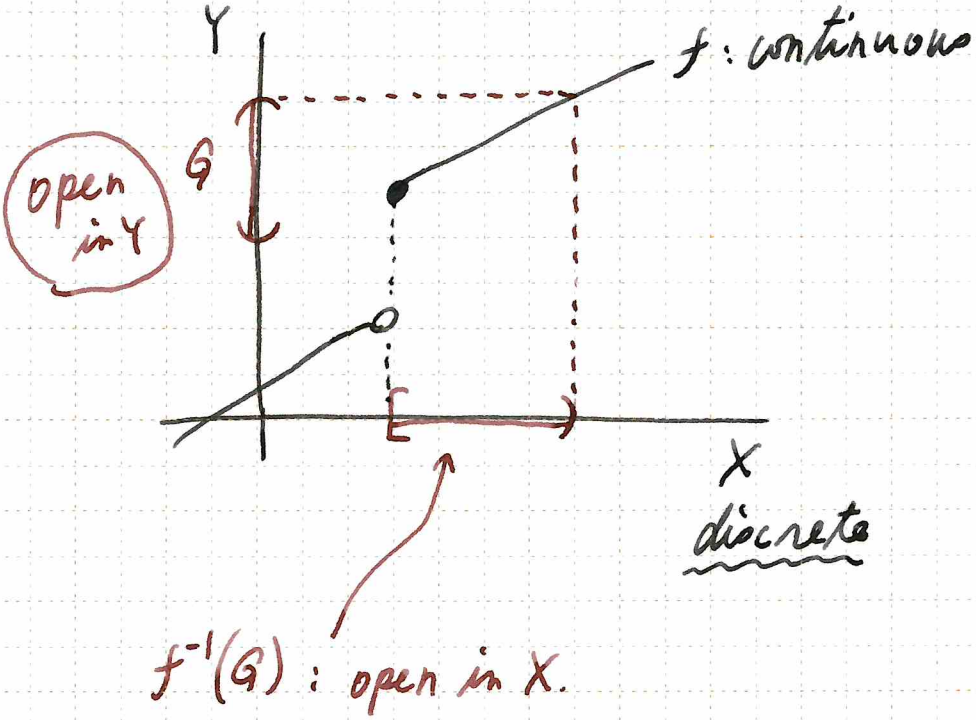 Y
f : continuous
G
open
in Y
X
discrete
f⁻¹(G) : open in X.